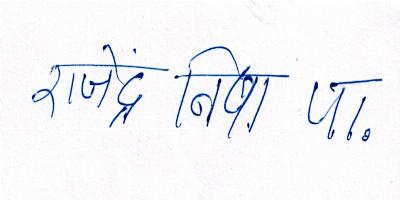 राजेंद्र निशा पा.